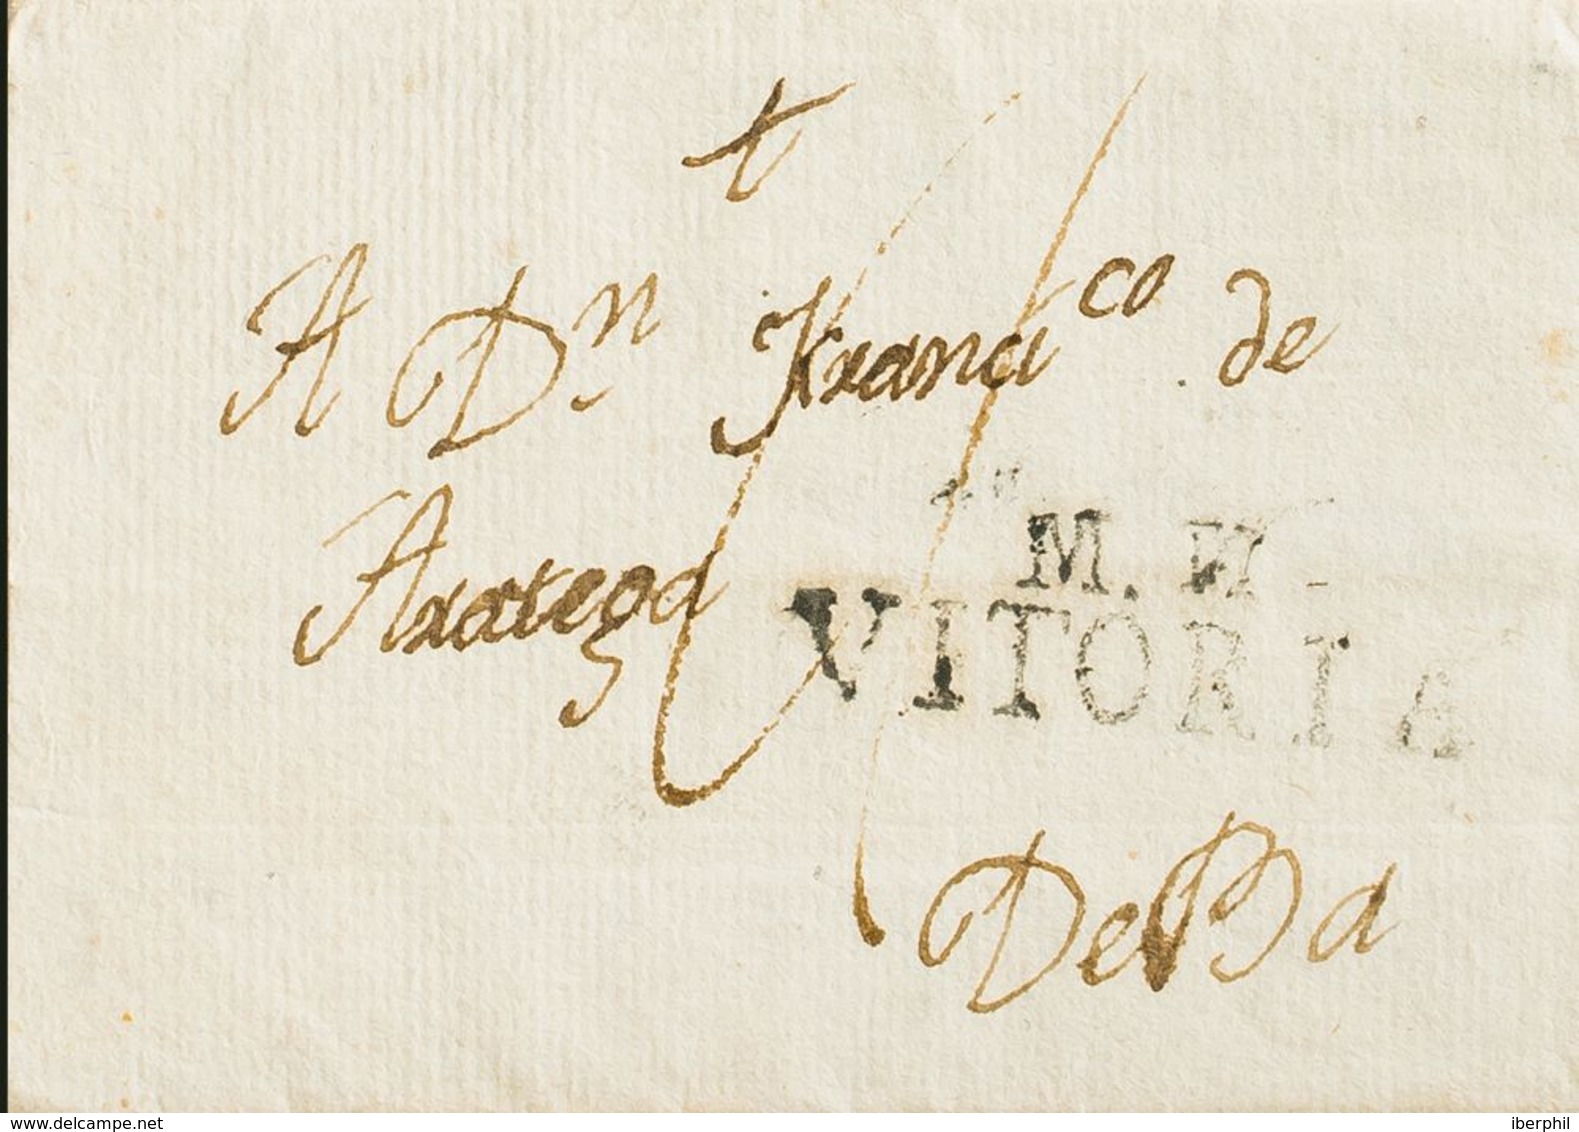 A Dn Francico de
Arategd
M. N.
VITORIA
DeBa
www.delcampe.net
iberphil